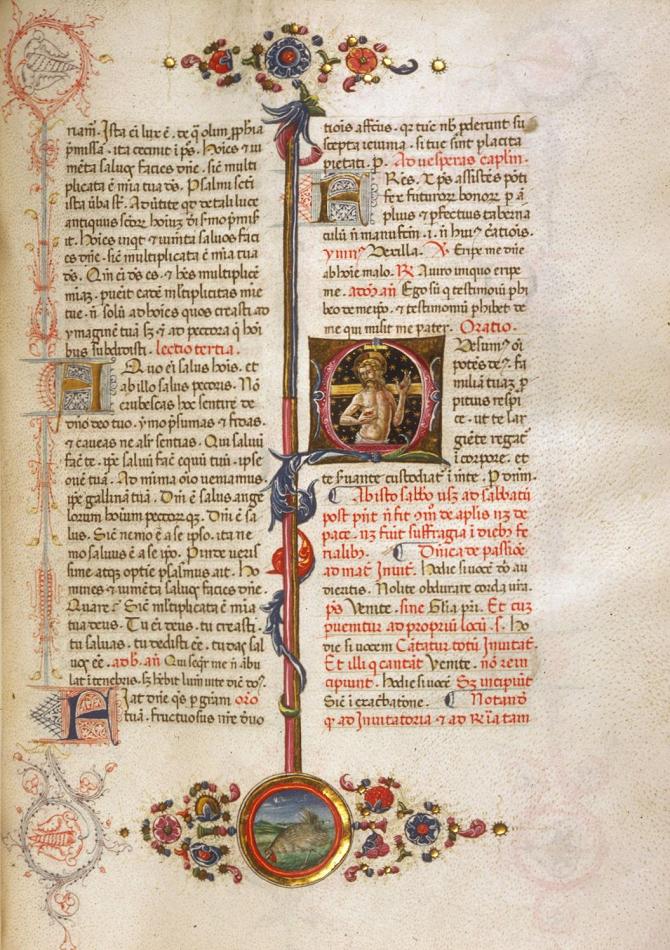 riam. Ista ci lux ē. de q̄ olim ꝓphīa
ꝓmissa. ita cecinit i pˢ. Hoīes ⁊ iu
mēta saluos facies dn̄e. sic̄ multi
plicata ē mīa tua dˢ. Psalmi scti
ista ūba st̄. Audite qͥ de tali luce
antiquus
it. Hoīes inqͭ ⁊ iumēta saluos faci
es dn̄e. sic̄ multiplicata ē mīa tua
dˢ. Qm̄ ci dˢ es. ⁊ hēs multiplicē
miāz. puēit eadē ml̄tiplicitas mīe
tue. n̄ solū ad hoīes quos creasti ad
ymaginē tuā sꝫ ⁊ ad peccora qͥ hoī
bus subdidisti. lectio tertia.
A Quo ci salus hoīs. et
ab illo salus pecoris. Nō
erubescas hoc sentire de
dn̄o deo tuo. ymo p̄sumas ⁊ fidas.
⁊ caueas ne alr̄ sentias. Qui saluū
fac̄ te. ip̄e saluū fac̄ equū tuū. ip̄se
ouē tuā. Ad mīma oīo ueniamus.
ip̄e gallinā tuā. Dn̄i ē salus ange
lorum hoium peccorqꝫ. Dn̄i ē sa
lus. Sic̄ nemo ē a se ip̄so. ita ne
mo saluus ē a se ip̄o. Proinde ueris
sime atqꝫ optīe psalmus ait. Ho
mines ⁊ iumēta saluos facies dn̄e.
Quare? Sic̄ ml̄tiplicata ē mīa
tua deus. Tu ci deus. tu creasti.
tu saluas. tu dedisti cē. tu das sal
uos cē. ad b. an̄ Qui seqͥr me n̄ ābu
lat i tenebris. sꝫ hēbit lum̄ uite dīc dn̄s.
Fiat dn̄e qs̄ p gr̄am oīo
tuā. fructuosus nr̄e deuo
tiōis affectus. qꝛ tūc nb̄ ꝓderunt su
scepta ieiunia. si tue sint placita
pietati. p. Ad uesperas caplm̄.
Frēs. Xp̄s assistēs pōti
fex futuroꝝ bonoꝝ p ā
plius ⁊ ꝓfectius taberna
culū n̄ manufcm̄. i. n̄ huiˢ creatiōis.
ymnˢ Vexilla. V̄. Eripe me dn̄e
ab hoīe malo. R̄ A uiro iniquo eripe
me. ad mḡ an̄ Ego sū qͥ testimoiū phi
beo de meip̄o. ⁊ testimoniū phibet de
me qui misit me pater. Oratio.
Qesumˢ oī
potēs dˢ. fa
miliā tuaz ꝓ
pitius respi
ce. ut te lar
giēte regat̄
i corpore. et
te seruante custodiat̄ i mēte. P dnm̄.
¶ Ab isto sabbo usqꝫ ad sabbatū
post p̄nt n̄ fit 9m̄ de aplis nꝫ de
pace. nꝫ fiūt suffragia i diebꝫ fe
rialibꝫ. ¶ Dn̄ica de passiōe
ad mat̄ Inuit̄. Hodie si uocē dn̄i au
dieritis. Nolite obdurare corda vr̄a.
p̄s Venite. sine Gl̄ia pr̄i. Et cuꝫ
puentur ad propriū locū. s. Ho
die si uocem Cātatur totū Inuitat̄.
Et illi qͥ cantāt Venite. nō rein
cipiunt. hodie si uocē Sꝫ incipiūt
Sic̄ i exacerbatione. ¶ Notand̄
ꝙ ad Inuitatoria ⁊ ad R̄ia tam